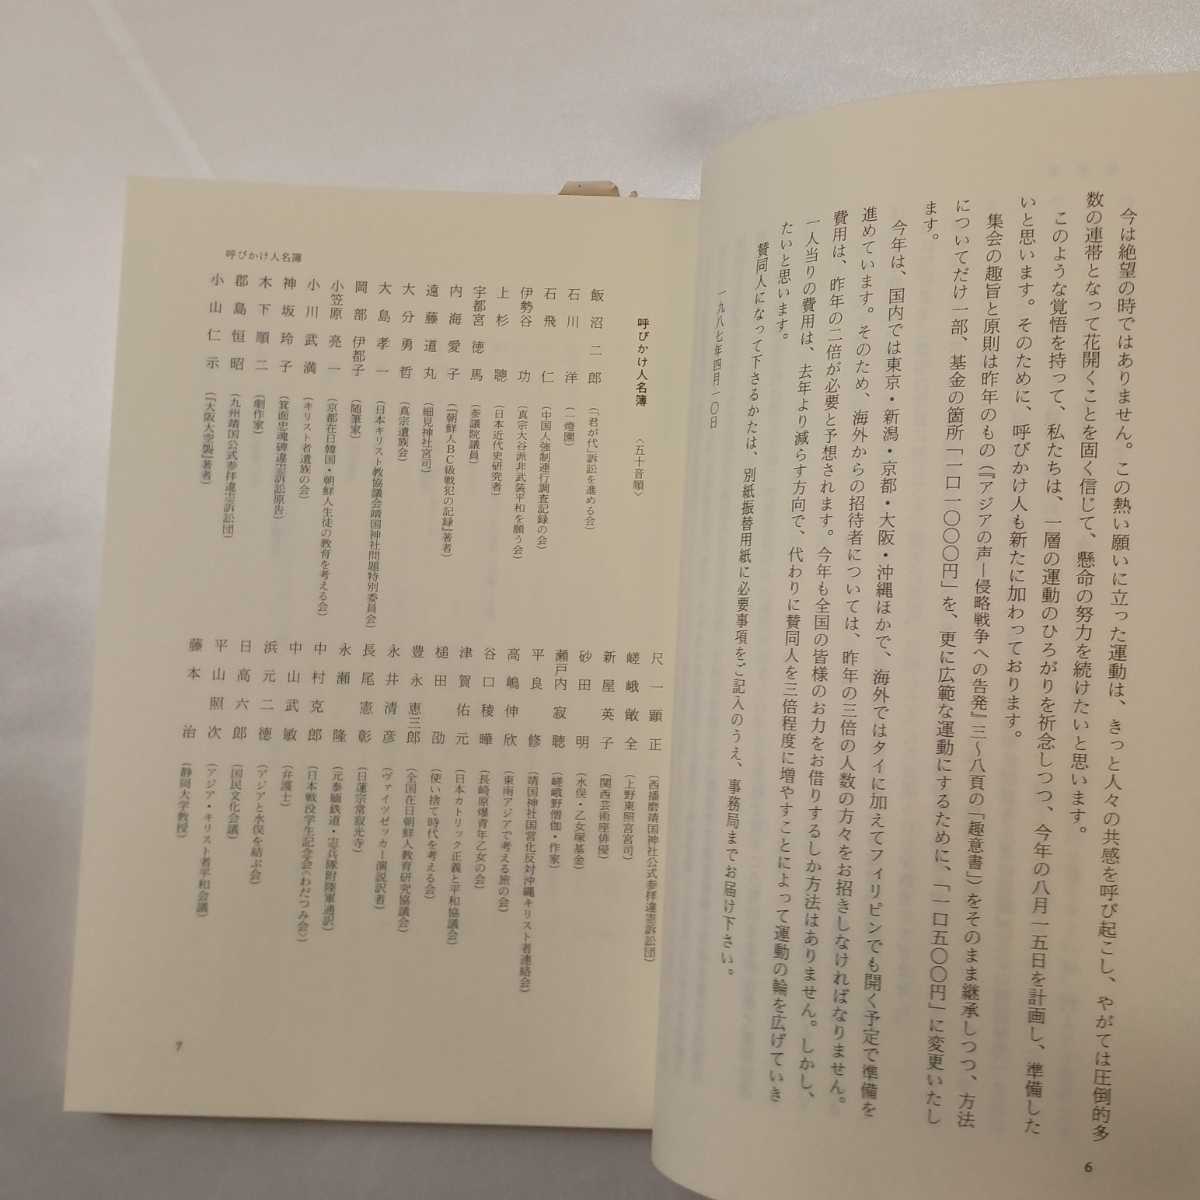 今は絶望の時ではありません。この熱い願いに立った運動は、きっと人々の共感を呼び起こし、やがては圧倒的多
数の連帯となって花開くことを固く信じて、懸命の努力を続けたいと思います。
このような覚悟を持って、私たちは、一層の運動のひろがりを祈念しつつ、今年の八月一五日を計画し、準備した
いと思います。そのために、呼びかけ人も新たに加わっております。
集会の趣旨と原則は昨年のもの(『アジアの声—侵略戦争への告発』三〜八頁の「趣意書」)をそのまま継承しつつ、方法
についてだけ一部、基金の箇所「一口一〇〇〇円」を、更に広範な運動にするために、「一口五〇〇円」に変更いたし
ます。
今年は、国内では東京・新潟・京都・大阪・沖縄ほかで、海外ではタイに加えてフィリピンでも開く予定で準備を
進めています。そのため、海外からの招待者については、昨年の三倍の人数の方々をお招きしなければなりません。
費用は、昨年の二倍が必要と予想されます。今年も全国の皆様のお力をお借りするしか方法はありません。しかし、
一人当りの費用は、去年より減らす方向で、代わりに賛同人を三倍程度に増やすことによって運動の輪を広げていき
たいと思います。
賛同人になって下さるかたは、別紙振替用紙に必要事項をご記入のうえ、事務局までお届け下さい。
一九八七年四月一〇日
6
呼びかけ人名簿
呼びかけ人名簿 〈五十音順〉
飯沼二郎 (「君が代」訴訟を進める会)
石川洋 (一燈園)
石飛仁 (中国人強制連行調査記録の会)
伊勢谷功 (真宗大谷派非武装平和を願う会)
上杉聰 (日本近代史研究者)
宇都宮徳馬 (参議院議員)
内海愛子 (『朝鮮人BC級戦犯の記録』著者)
遠藤道丸 (細見神社宮司)
大分勇哲 (真宗遺族会)
大島孝一 (日本キリスト教協議会靖国神社問題特別委員会)
岡部伊都子 (随筆家)
小笠原亮一 (京都在日韓国・朝鮮人生徒の教育を考える会)
小川武満 (キリスト者遺族の会)
神坂玲子 (箕面忠魂碑違憲訴訟原告)
木下順二 (劇作家)
郡島恒昭 (九州靖国公式参拝違憲訴訟団)
小山仁示 (『大阪大空襲』著者)
尺一顕正 (西播磨靖国神社公式参拝違憲訴訟団)
嵯峨敞全 (上野東照宮宮司)
新屋英子 (関西芸術座俳優)
砂田明 (水俣・乙女塚基金)
瀬戸内寂聴 (嵯峨野僧伽・作家)
平良修 (靖国神社国営化反対沖縄キリスト者連絡会)
高嶋伸欣 (東南アジアで考える旅の会)
谷口稜曄 (長崎原爆青年乙女の会)
津賀佑元 (日本カトリック正義と平和協議会)
槌田劭 (使い捨て時代を考える会)
豊永恵三郎 (全国在日朝鮮人教育研究協議会)
永井清彦 (ヴァイツゼッカー演説訳者)
長尾憲彰 (日蓮宗常寂光寺)
永瀬隆 (元泰緬鉄道・憲兵隊附陸軍通訳)
中村克郎 (日本戦没学生記念会〈わだつみ会〉)
中山武敏 (弁護士)
浜元二徳 (アジアと水俣を結ぶ会)
日高六郎 (国民文化会議)
平山照次 (アジア・キリスト者平和会議)
藤本治 (静岡大学教授)
7